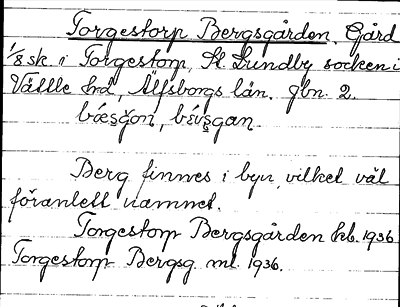 Torgestorp Bergsgården. Gård
1/8 sk. i Torgestorp, St. Lundby socken i
Vättle hrd, Älfsborgs län. jbn. 2.
Berg finnes i byn, vilket väl
föranlett namnet.
Torgestorp Bergsgården kb. 1936
Torgestorp Bergsg. ml. 1936.